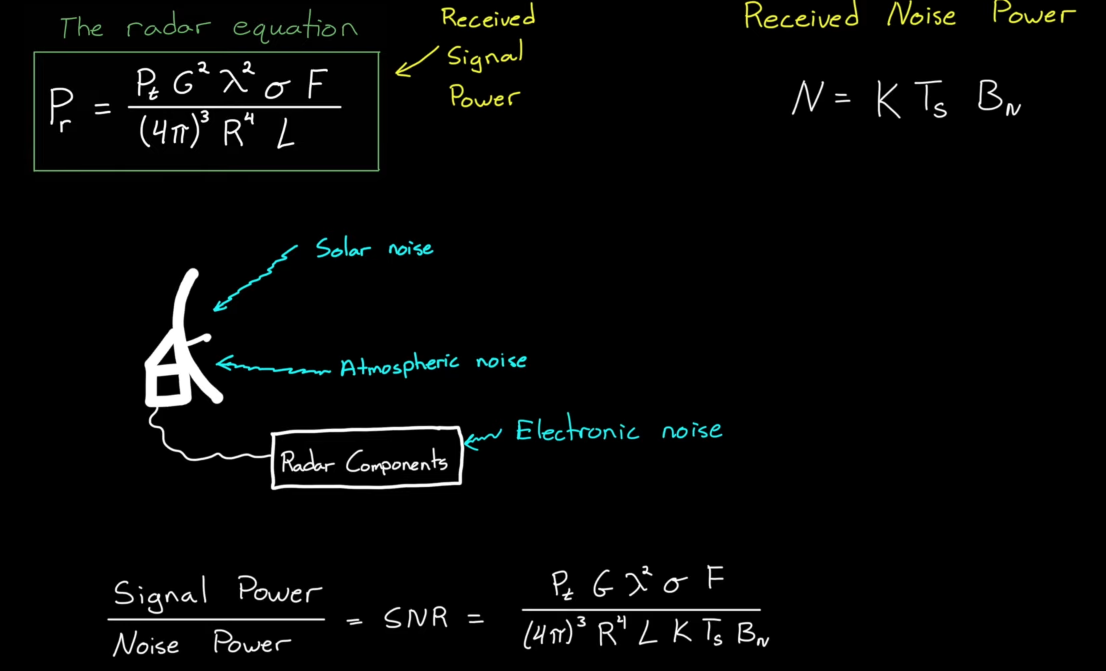 The radar equation
P_r = P_t G² λ² σ F / (4π)³ R⁴ L
Received
Signal
Power
Received Noise Power
N = K T_s B_N
Solar noise
Atmospheric noise
Electronic noise
Radar Components
Signal Power / Noise Power = SNR = P_t G λ² σ F / (4π)³ R⁴ L K T_s B_N